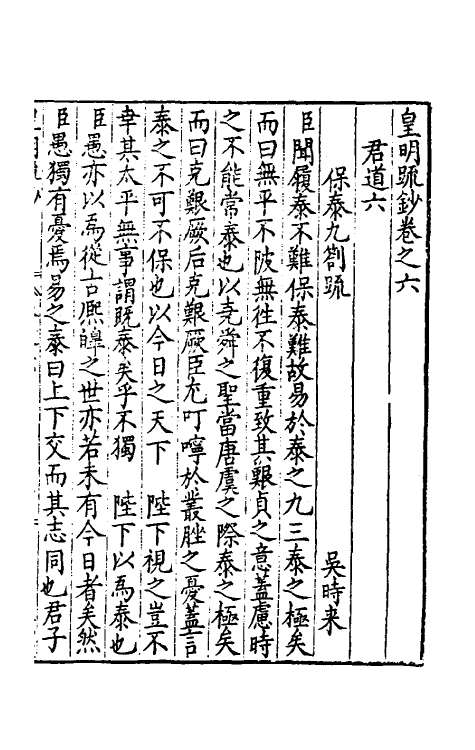 皇明疏鈔卷之六
君道六
保泰九劄疏 吳時来
臣聞履泰不難保泰難故易於泰之九三泰之極矣
而曰無平不陂無徃不復重致其艱貞之意蓋慮時
之不能常泰也以堯舜之聖當唐虞之際泰之極矣
而曰克艱厥后克艱厥臣尤叮嚀於叢脞之憂蓋言
泰之不可不保也以今日之天下 陛下視之豈不
幸其太平無事謂旣泰矣乎不獨 陛下以爲泰也
臣愚亦以爲從古熈皡之世亦若未有今日者矣然
臣愚獨有憂焉易之泰曰上下交而其志同也君子